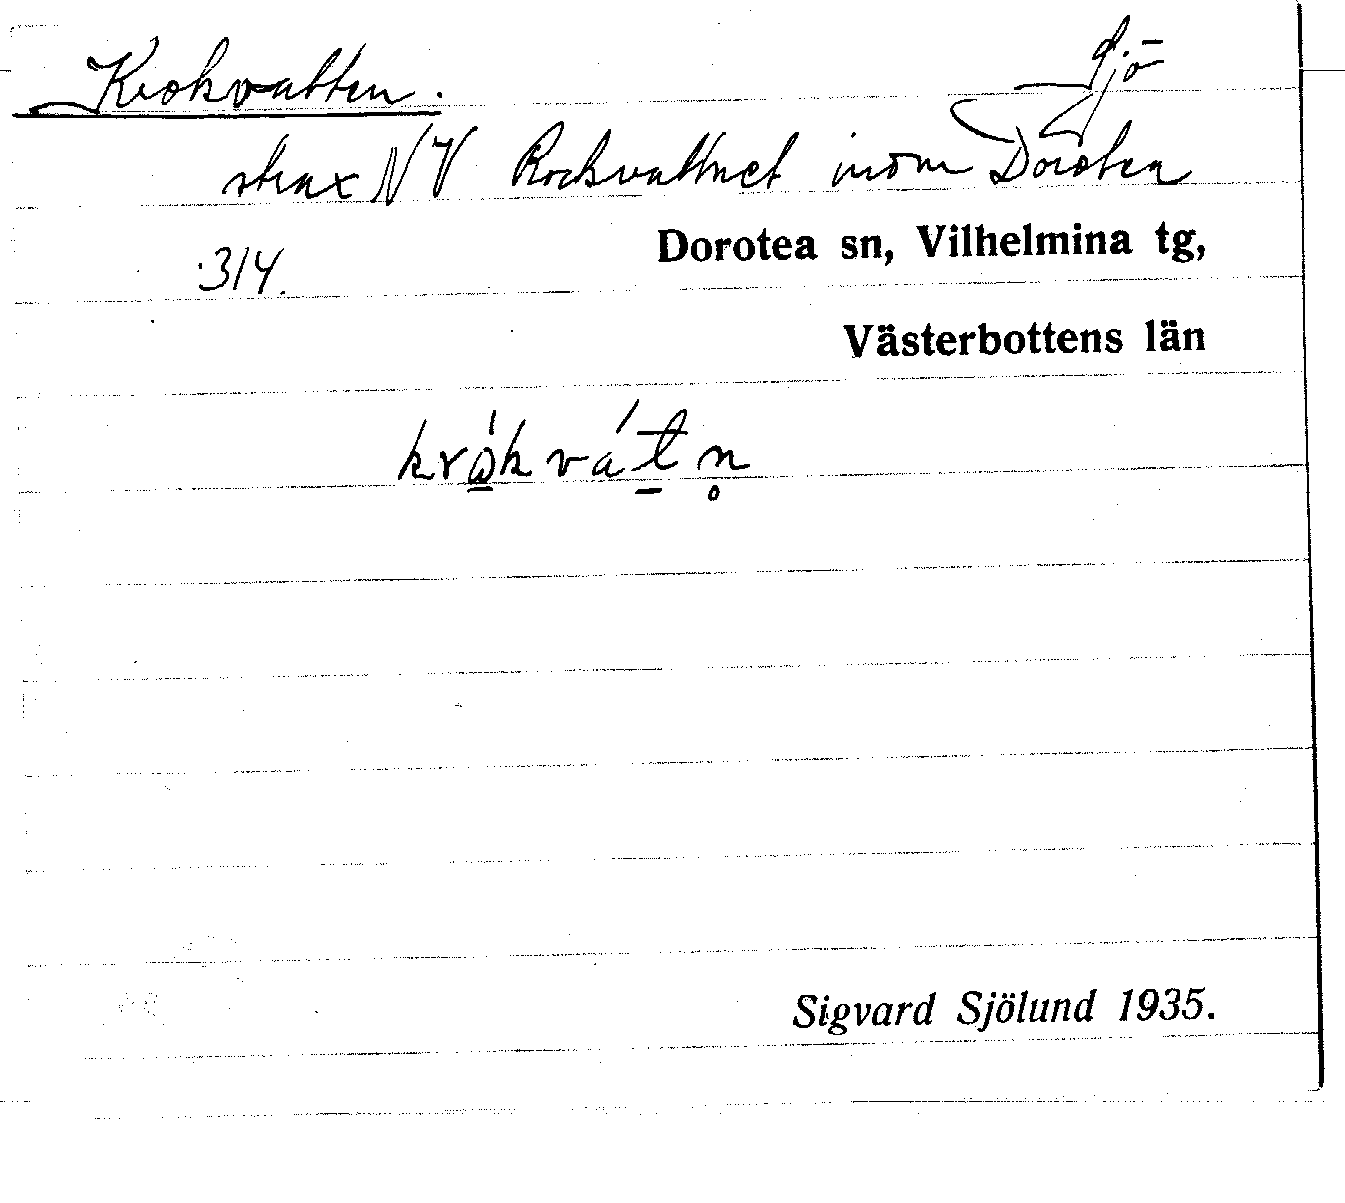 Krokvatten. sjö
strax NV Rockvattnet inom Dorotea
314.
Dorotea sn, Vilhelmina tg,
Västerbottens län
krώ̲kvát̲n̥
Sigvard Sjölund 1935.